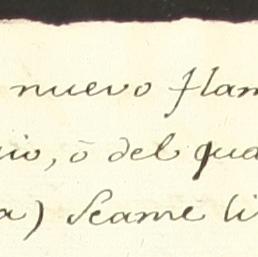 nuevo flam
io, ò del qua
a) Seame li